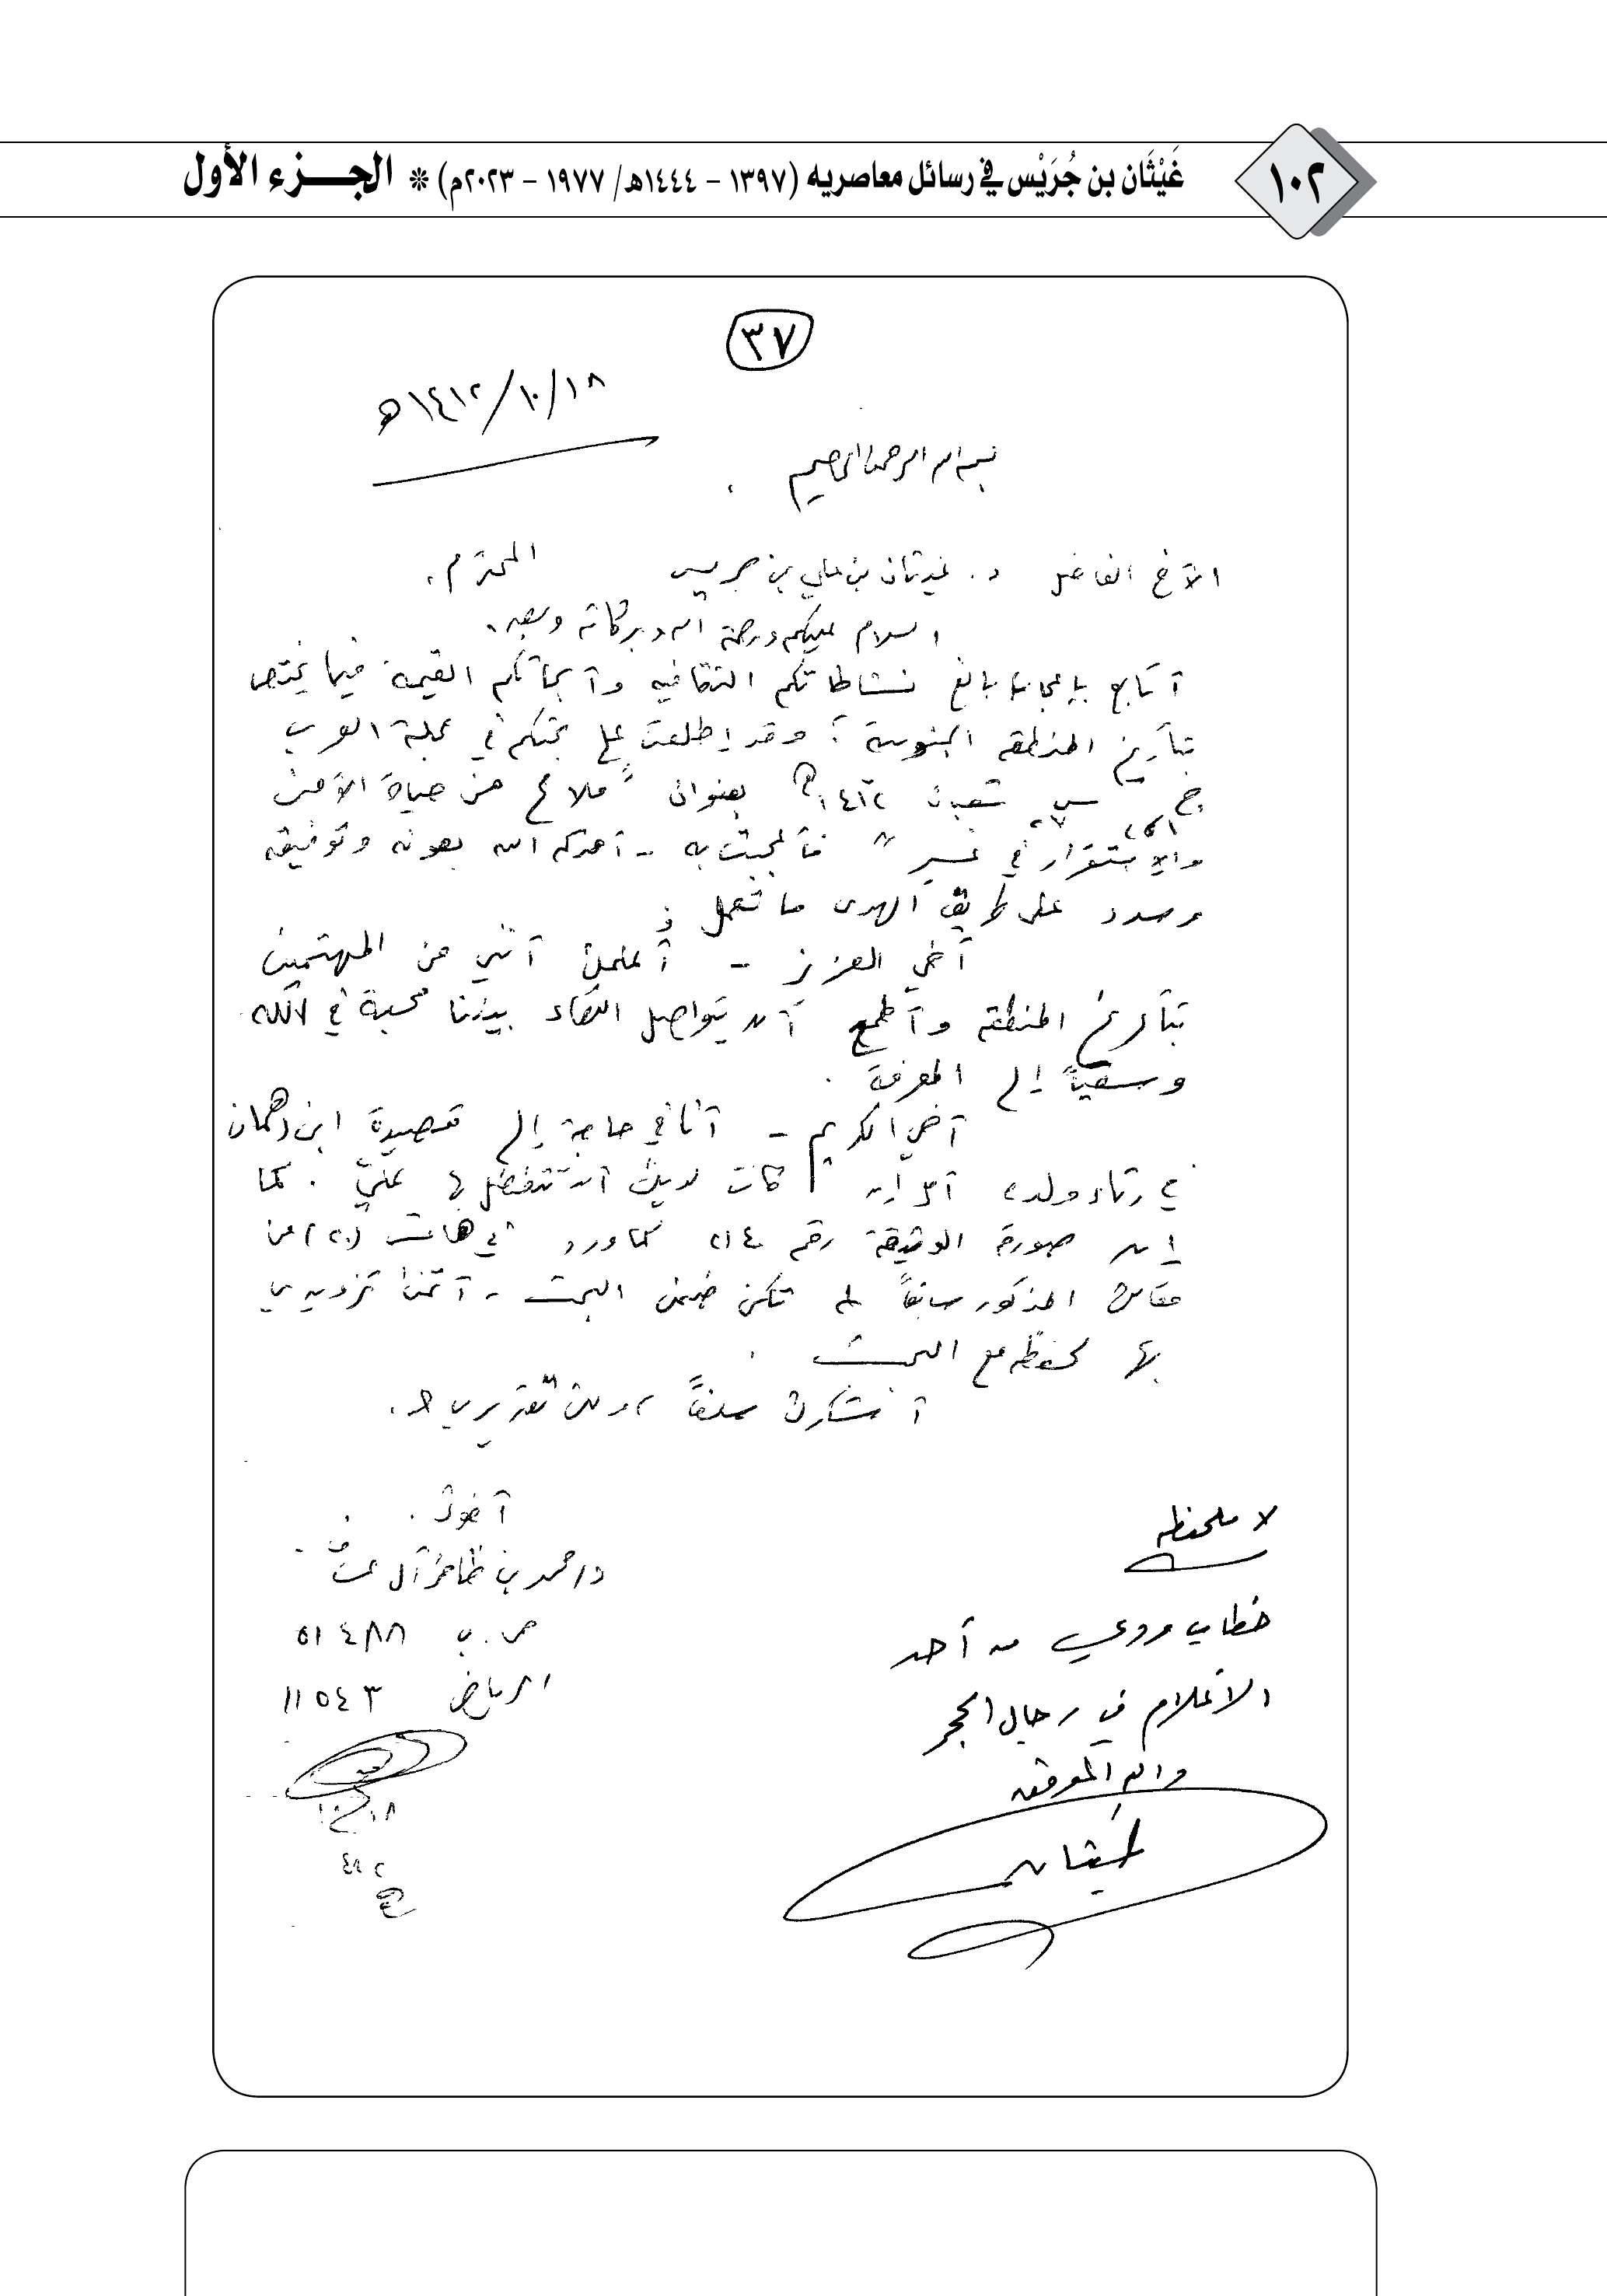 ١٠٢
غَيْثَان بن جُرَيْس في رسائل معاصريه (١٣٩٧ - ١٤٤٤هـ/ ١٩٧٧ - ٢٠٢٣م) * الجزء الأول
٣٧
١٤١٢/١٠/١٨هـ
بسم الله الرحمن الرحيم
الأخ الفاضل د. غيثان بن علي بن جريس المحترم،
السلام عليكم ورحمة الله وبركاته وبعد،
أتابع بإعجاب بالغ نشاطاتكم الثقافيه وأبحاثكم القيمة فيما يختص
بتأريخ المنطقه الجنوبية؛ وقد إطلعت على بحثكم في مجلة العرب
ج س شعبان ١٤١٢هـ بعنوان "ملامح من حياة الأمن
والإستقرار في عسير" فأعجبت به - أمدكم الله بعونه وتوفيقه
وسدد على طريق الهدى ما تعمل
أخي العزيز - أعلمك أنني من المهتمين
بتأريخ المنطقه وأطمع أن يتواصل اللقاء بيننا محبة في الله
وسعياً إلى المعرفة .
أخي الكريم - أنا في حاجة إلى قصيدة ابن دهمان
في رثاء ولده، إن كانت لديك أن تتفضل بها عليّ . كما
إن صورة الوثيقة رقم كما ورد في هامش (٢٠) من
مقالك المذكور سابقاً لم تكن ضمن البحث - أتمنى تزويدي
بها لحفظه مع البحث .
أشكرك سلفاً، ولك تقديري
أخوك .
د/ محمد بن ظافر آل
ص.ب ٥١٤٨٨
الرياض ١١٥٤٣
١٠/١٨
٤١٢
هـ
لا ملحظه
خطاب من أحد
الأعلام في رجال الحجر
والله الموفق
غيثان